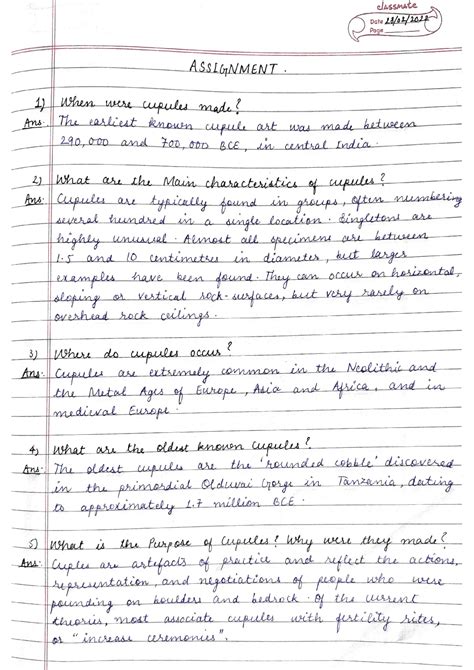 classmate
Date 22/02/2022
Page
ASSIGNMENT.
1) When were cupules made?
Ans: The earliest known cupule art was made between
290,000 and 700,000 BCE, in central India.
2) What are the Main characteristics of cupules?
Ans: Cupules are typically found in groups, often numbering
several hundred in a single location. Singletons are
highly unusual. Almost all specimens are between
1.5 and 10 centimetres in diameter, but larger
examples have been found. They can occur on horizontal,
sloping or vertical rock-surfaces, but very rarely on
overhead rock ceilings.
3) Where do cupules occur?
Ans: Cupules are extremely common in the Neolithic and
the Metal Ages of Europe, Asia and Africa, and in
medieval Europe.
4) What are the oldest known Cupules?
Ans: The oldest cupules are the 'rounded cobble' discovered
in the primordial Olduwai Gorge in Tanzania, dating
to approximately 1.7 million BCE.
5) What is the Purpose of Cupules? Why were they made?
Ans: Cuples are artefacts of practice and reflect the actions,
representation, and negotiations of people who were
pounding on boulders and bedrock. Of the current
theories, most associate cupules with fertility rites,
or "increase ceremonies".